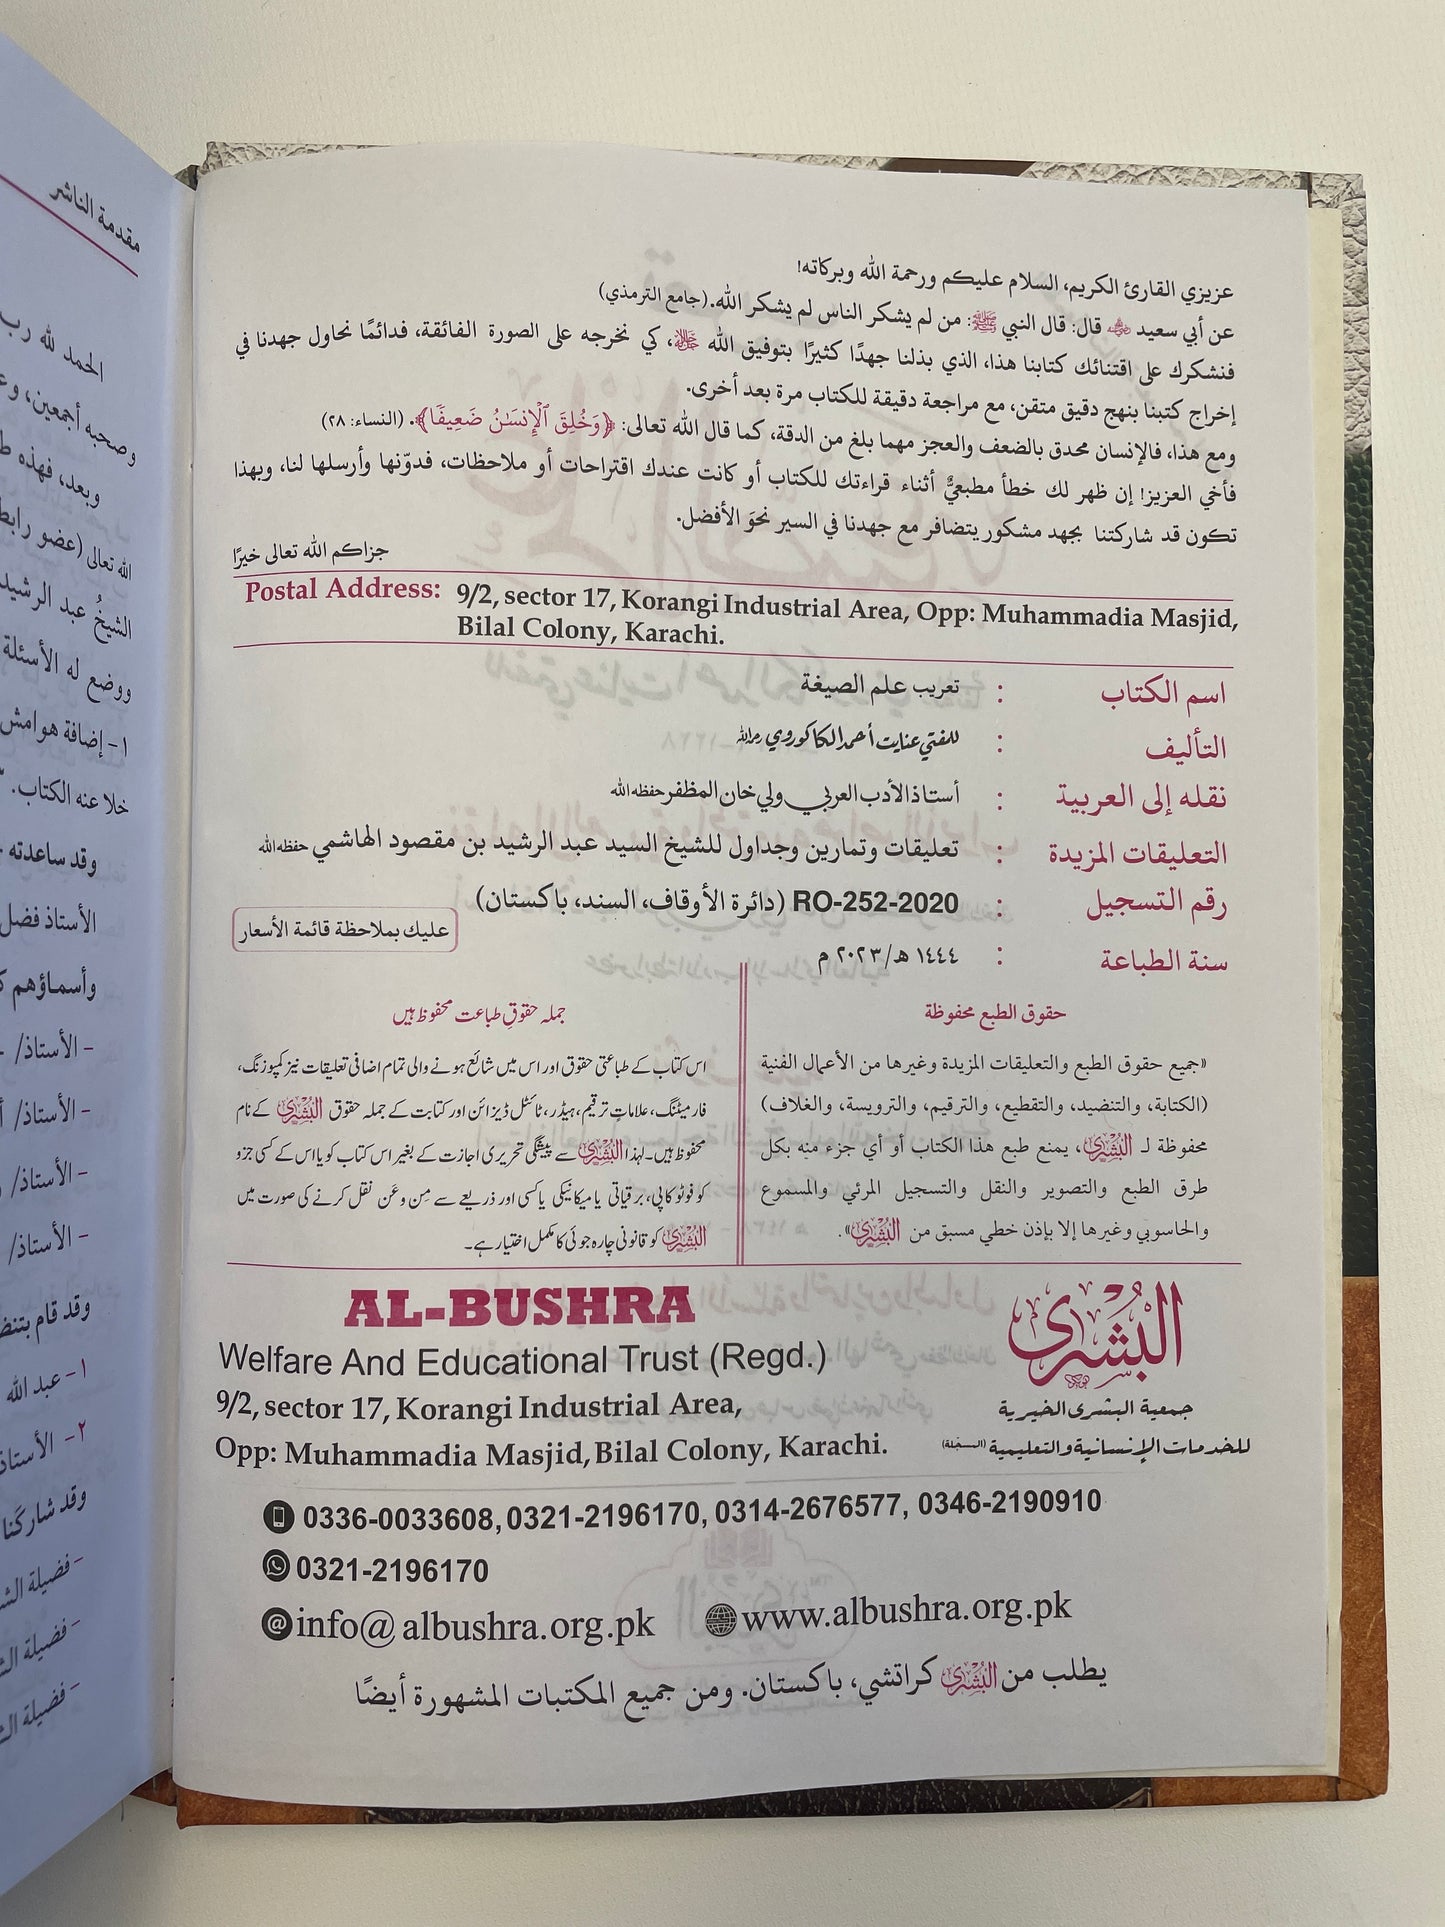 عزيزي القارئ الكريم، السلام عليكم ورحمة الله وبركاته!
عن أبي سعيد رضي الله عنه قال: قال النبي ﷺ: من لم يشكر الناس لم يشكر الله. (جامع الترمذي)
فنشكرك على اقتنائك كتابنا هذا، الذي بذلنا جهدًا كثيرًا بتوفيق الله ﷻ، كي نخرجه على الصورة الفائقة، فدائمًا نحاول جهدنا في
إخراج كتبنا بنهج دقيق متقن، مع مراجعة دقيقة للكتاب مرة بعد أخرى.
ومع هذا، فالإنسان محدق بالضعف والعجز مهما بلغ من الدقة، كما قال الله تعالى: ﴿وَخُلِقَ ٱلْإِنسَٰنُ ضَعِيفًا﴾. (النساء: ٢٨)
فأخي العزيز! إن ظهر لك خطأ مطبعيٌّ أثناء قراءتك للكتاب أو كانت عندك اقتراحات أو ملاحظات، فدوّنها وأرسلها لنا، وبهذا
تكون قد شاركتنا بجهد مشكور يتضافر مع جهدنا في السير نحوَ الأفضل.
جزاكم الله تعالى خيرًا
Postal Address: 9/2, sector 17, Korangi Industrial Area, Opp: Muhammadia Masjid,
Bilal Colony, Karachi.
اسم الكتاب : تعريب علم الصيغة
التأليف : للمفتي عنايت أحمد الكاكوروي رحمه الله
نقله إلى العربية : أستاذ الأدب العربي ولي خان المظفر حفظه الله
التعليقات المزيدة : تعليقات وتمارين وجداول للشيخ السيد عبد الرشيد بن مقصود الهاشمي حفظه الله
رقم التسجيل : RO-252-2020 (دائرة الأوقاف، السند، باكستان)
سنة الطباعة : ١٤٤٤ هـ/٢٠٢٣ م
عليك بملاحظة قائمة الأسعار
حقوق الطبع محفوظة
«جميع حقوق الطبع والتعليقات المزيدة وغيرها من الأعمال الفنية
(الكتابة، والتنضيد، والتقطيع، والترقيم، والترويسة، والغلاف)
محفوظة لـ البُشْرى، يمنع طبع هذا الكتاب أو أي جزء منه بكل
طرق الطبع والتصوير والنقل والتسجيل المرئي والمسموع
والحاسوبي وغيرها إلا بإذن خطي مسبق من البُشْرى».
جملہ حقوقِ طباعت محفوظ ہیں
اس کتاب کے طباعتی حقوق اور اس میں شائع ہونے والی تمام اضافی تعلیقات نیز کمپوزنگ،
فارمیٹنگ، علاماتِ ترقیم، ہیڈر، ٹائٹل ڈیزائن اور کتابت کے جملہ حقوق البُشْرى کے نام
محفوظ ہیں۔ لہٰذا البُشْرى سے پیشگی تحریری اجازت کے بغیر اس کتاب کو یا اس کے کسی جزو
کو فوٹو کاپی، برقیاتی یا میکانیکی یا کسی اور ذریعے سے مِن و عَن نقل کرنے کی صورت میں
البُشْرى کو قانونی چارہ جوئی کا مکمل اختیار ہے۔
AL-BUSHRA
Welfare And Educational Trust (Regd.)
9/2, sector 17, Korangi Industrial Area,
Opp: Muhammadia Masjid, Bilal Colony, Karachi.
البُشْرى
جمعية البشرى الخيرية
للخدمات الإنسانية والتعليمية (المسجلة)
0336-0033608, 0321-2196170, 0314-2676577, 0346-2190910
0321-2196170
info@albushra.org.pk www.albushra.org.pk
يطلب من البُشْرى كراتشي، باكستان. ومن جميع المكتبات المشهورة أيضًا
مقدمة الناشر
الحمد لله رب
وصحبه أجمعين، و
وبعد، فهذه
الله تعالى (عضو رابط
الشيخُ عبد الرشيد
ووضع له الأسئلة
١- إضافة هوامش
خلا عنه الكتاب.
وقد ساعدته
الأستاذ فضل
وأسماؤهم
- الأستاذ/
- الأستاذ/
- الأستاذ/
- الأستاذ/
وقد قام بتنض
١- عبد الله
٢- الأستاذ
وقد شاركَنا
- فضيلة الش
- فضيلة الش
- فضيلة الش